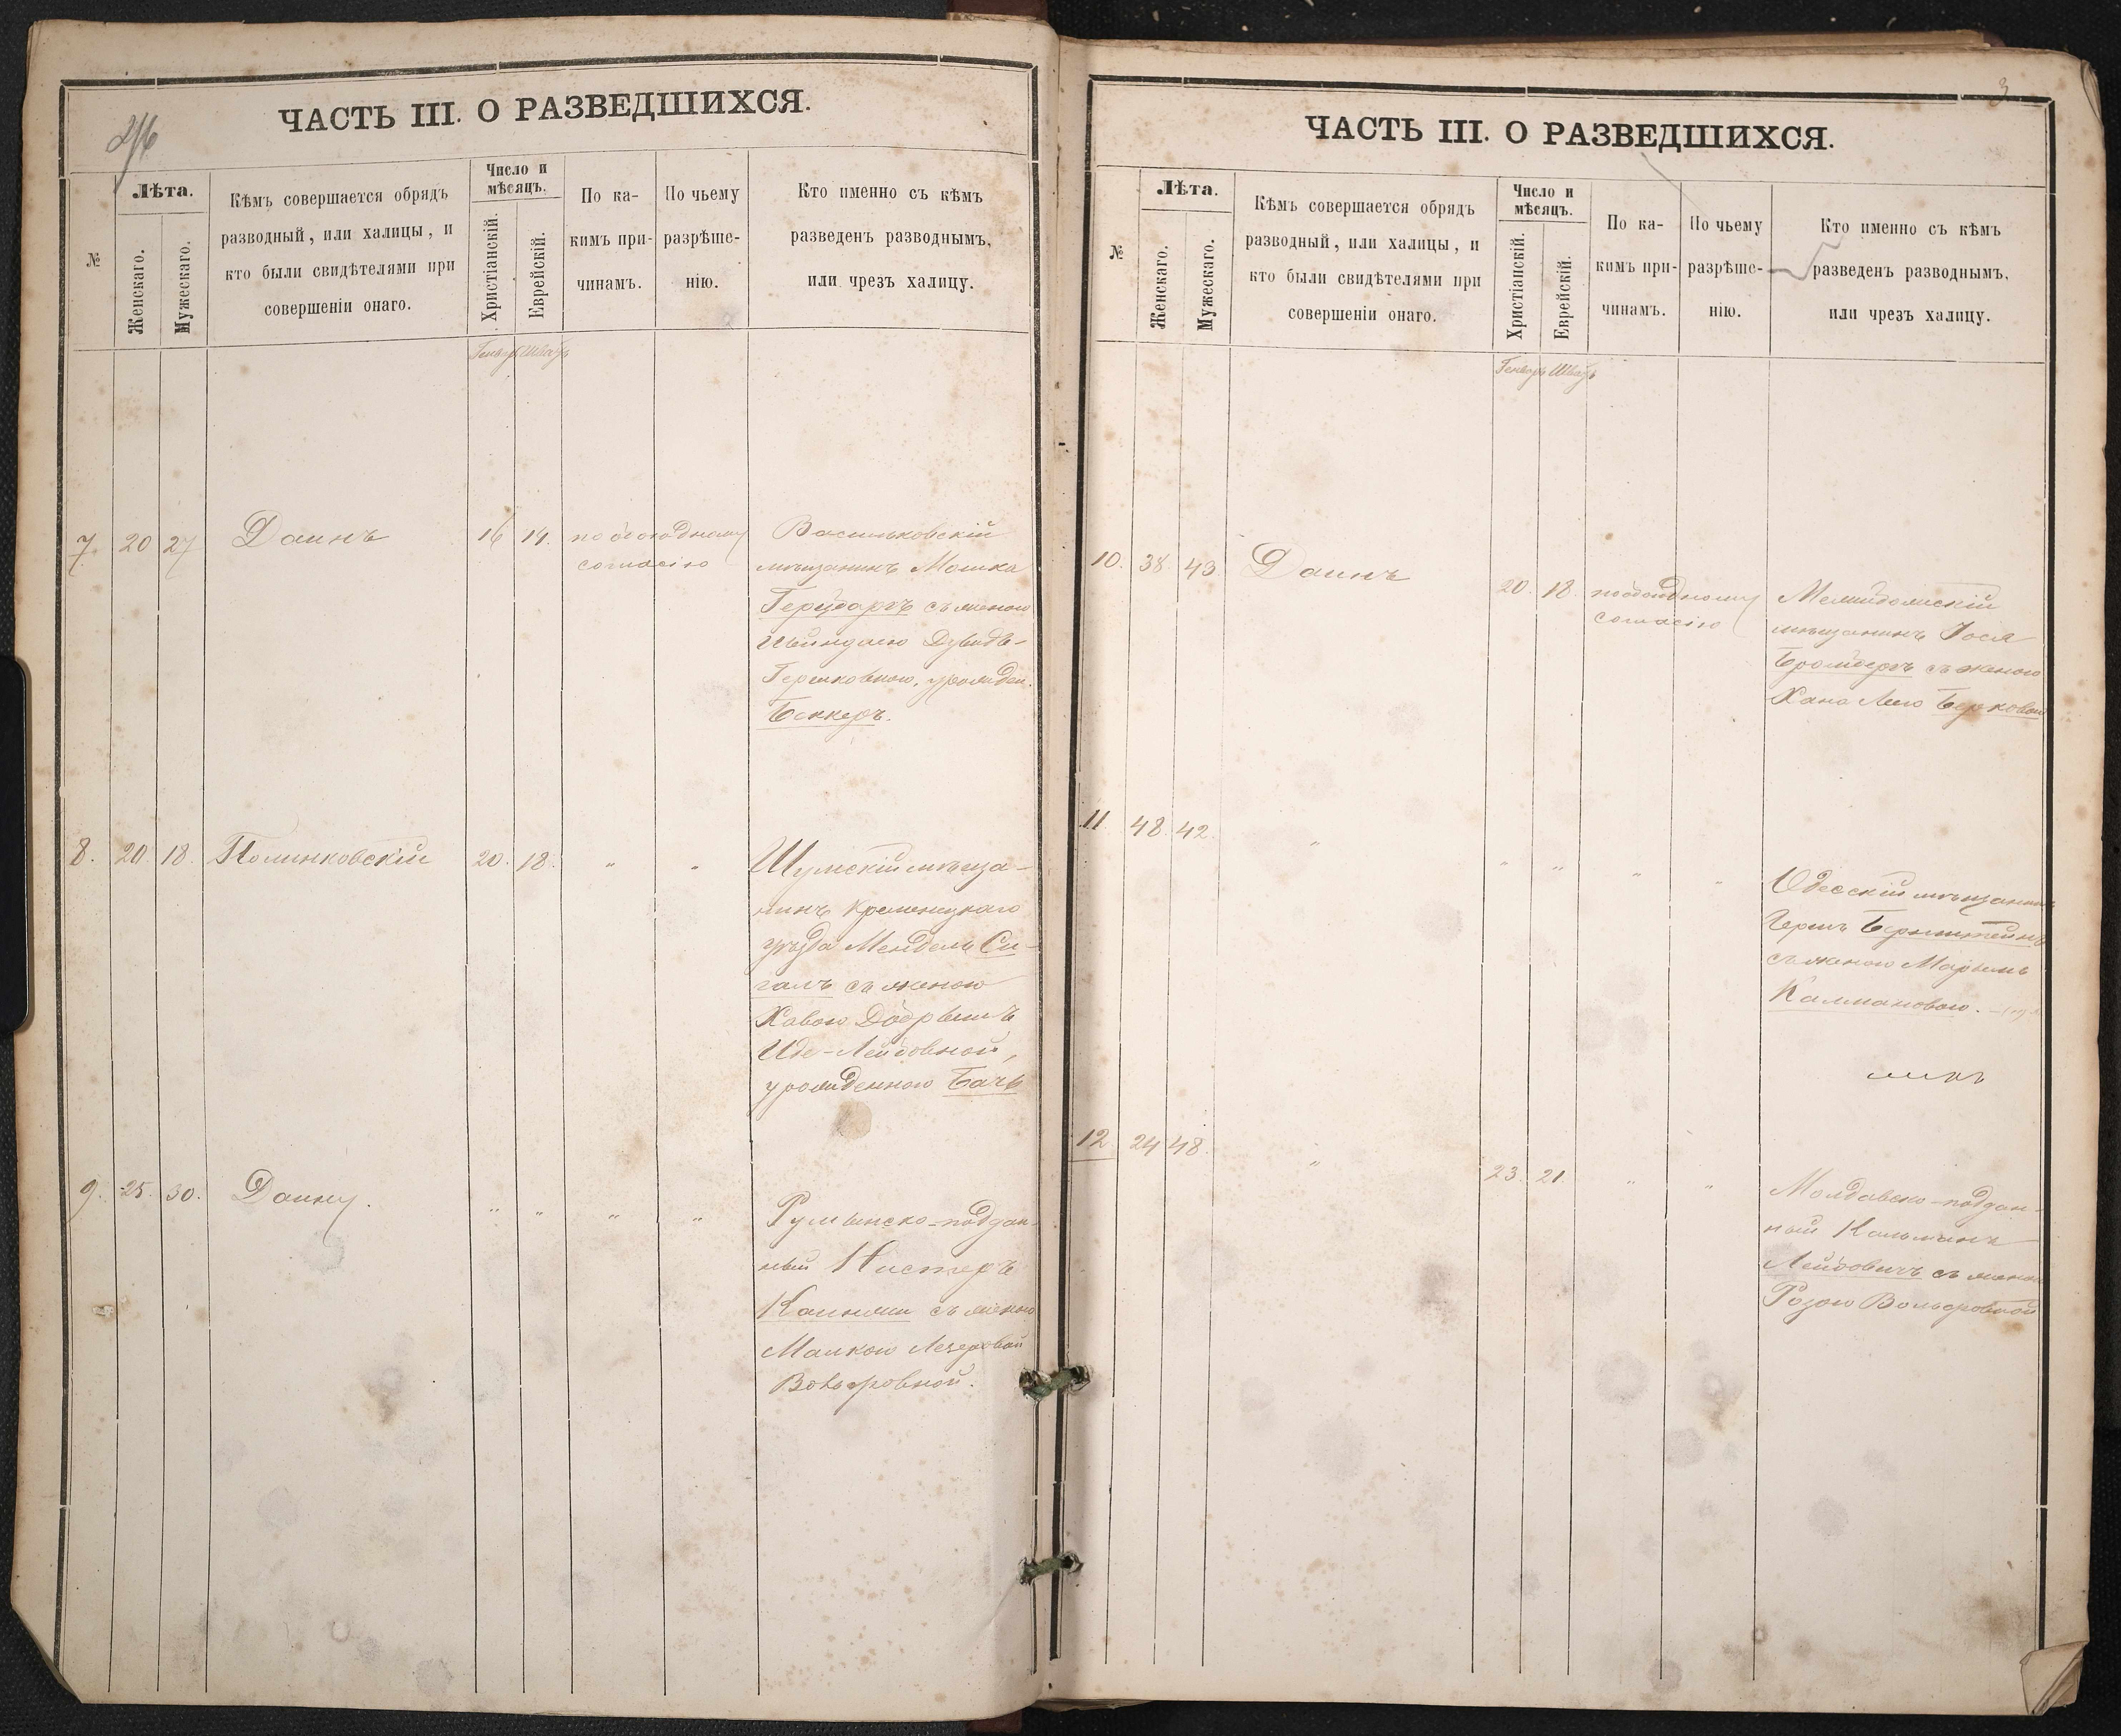 ЧАСТЬ III. О РАЗВЕДШИХСЯ.
№
Лѣта.
Женскаго.
Мужескаго.
Кѣмъ совершается обрядъ
разводный, или халицы, и
кто были свидѣтелями при
совершеніи онаго.
Число и
мѣсяцъ.
Христіанскій.
Еврейскій.
По ка-
кимъ при-
чинамъ.
По чьему
разрѣше-
нію.
Кто именно съ кѣмъ
разведенъ разводнымъ,
или чрезъ халицу.
Генварь Шватъ
7. 20 27 Даинъ 16 14. по обоюдному
согласію
Васильковскій
мѣщанинъ Мошка
съ женою
Гершковною, урожден.
Беккеръ.
8. 20. 18. Полинковскій 20. 18. " "
Шумскій мѣща-
нинъ Кременецкаго
уѣзда Мендель Си-
галъ съ женою
Хавою Добрышъ
Лейбовной,
урожденною Бачъ
9. 25. 30. Даину. " " " "
Румынско-поддан-
ный
съ женою
Малкою Лезеровой
Вольфовной.
ЧАСТЬ III. О РАЗВЕДШИХСЯ.
3
№
Лѣта.
Женскаго.
Мужескаго.
Кѣмъ совершается обрядъ
разводный, или халицы, и
кто были свидѣтелями при
совершеніи онаго.
Число и
мѣсяцъ.
Христіанскій.
Еврейскій.
По ка-
кимъ при-
чинамъ.
По чьему
разрѣше-
нію.
Кто именно съ кѣмъ
разведенъ разводнымъ,
или чрезъ халицу.
Генварь Шватъ
10. 38. 43. Даинъ 20. 18. по обоюдному
согласію
мѣщанинъ Іося
съ женою
Хана Лею Берковой
11 48. 42. " " " " "
Одесскій мѣщанинъ
Гершъ Бернштейнъ
съ женою Марьемъ
Калмановою.
12 24 48. " 23. 21. " "
Молдавско-поддан-
ный Кальманъ
Лейбовичъ съ женою
Розою Вольфовной